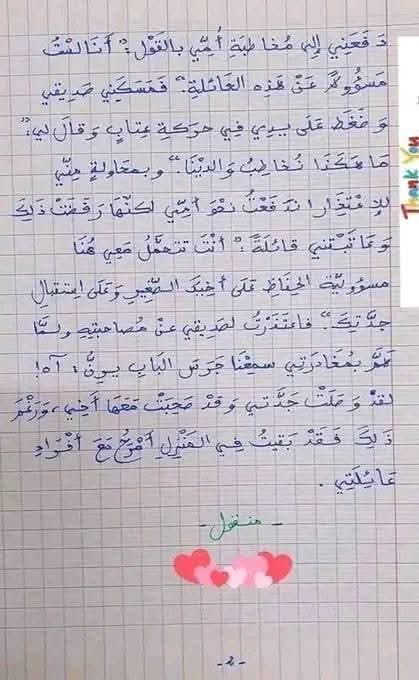 دَفَعَنِي إِلى مُخَاطَبَةِ أُمِّي بِالقَوْلِ: "أَنَا لسْتُ
مَسْؤُولاً عَنْ هَذِهِ العَائلةِ." فَمَسَكَنِي صَدِيقي
وَضَغَطَ عَلَى يدِي فِي حَرَكَةِ عِتابٍ وَقالَ لي: "
مَا هَكَذَا نُخَاطِبُ وَالدِيْنَا." وبمَحَاولةٍ مِنِّي
للإعْتِذَارِ اندَفَعْتُ نحْوَ أمِّي لكنَّهَا رَفَضَتْ ذَلِكَ
وَعَاتَبَتْني قائلَةً: "أنْتَ تتحَمَّلُ مَعِي هُنَا
مسؤوليَّةَ الحِفَاظِ عَلَى أَخِيكَ الصَّغِيرِ وَعَلى اسْتقبَالِ
جدَّتِكَ." فَاعتَذَرْتُ لصَدِيقي عنْ مُصَاحبتِهِ ولمَّا
هَمَّ بمُغَادرَتِي سمِعْنَا جَرَسَ البَابِ يرِنُّ: آه!
لقدْ وَصَلَتْ جَدَّتي وَقدْ صَحِبَتْ مَعَهَا أَخِي، وَرَغْمَ
ذَلِكَ فَقَدْ بَقيتُ فِي المَنْزِلِ أَمْرَحُ مَعَ أَفْرَادِ
عَائِلَتِي.
- منقول -
Thank You
-2-